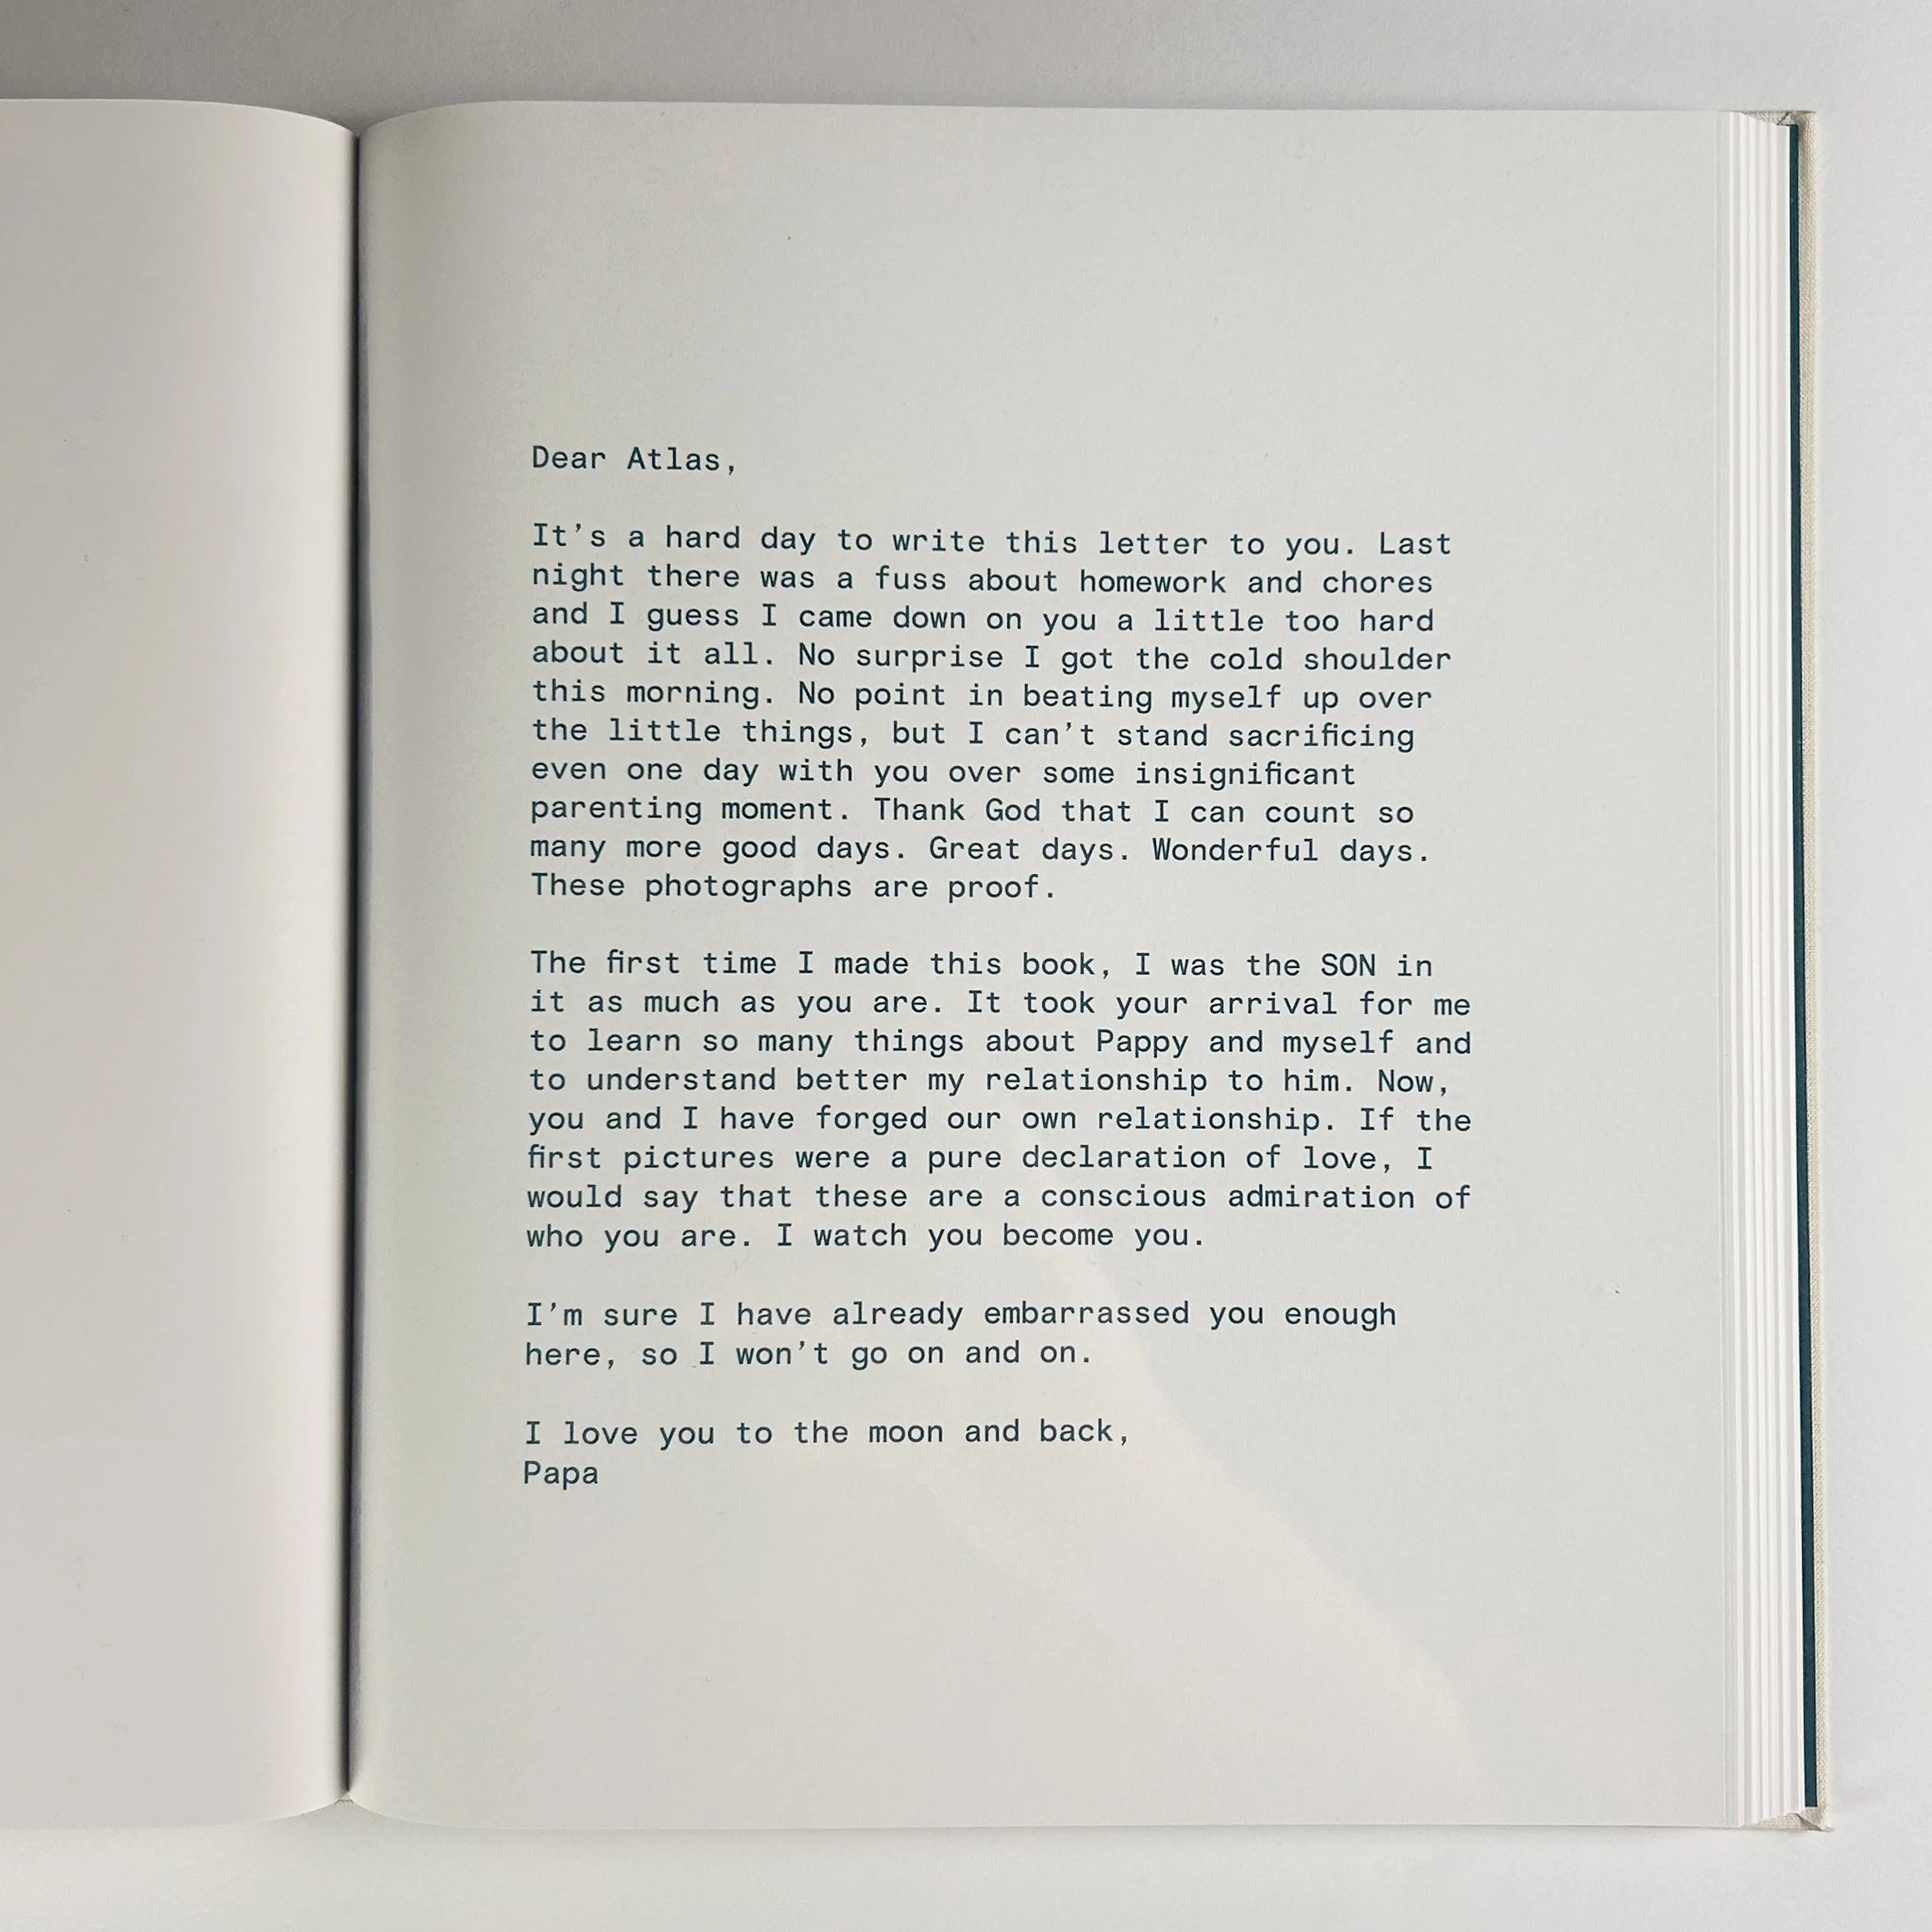 Dear Atlas,
It’s a hard day to write this letter to you. Last
night there was a fuss about homework and chores
and I guess I came down on you a little too hard
about it all. No surprise I got the cold shoulder
this morning. No point in beating myself up over
the little things, but I can’t stand sacrificing
even one day with you over some insignificant
parenting moment. Thank God that I can count so
many more good days. Great days. Wonderful days.
These photographs are proof.
The first time I made this book, I was the SON in
it as much as you are. It took your arrival for me
to learn so many things about Pappy and myself and
to understand better my relationship to him. Now,
you and I have forged our own relationship. If the
first pictures were a pure declaration of love, I
would say that these are a conscious admiration of
who you are. I watch you become you.
I’m sure I have already embarrassed you enough
here, so I won’t go on and on.
I love you to the moon and back,
Papa